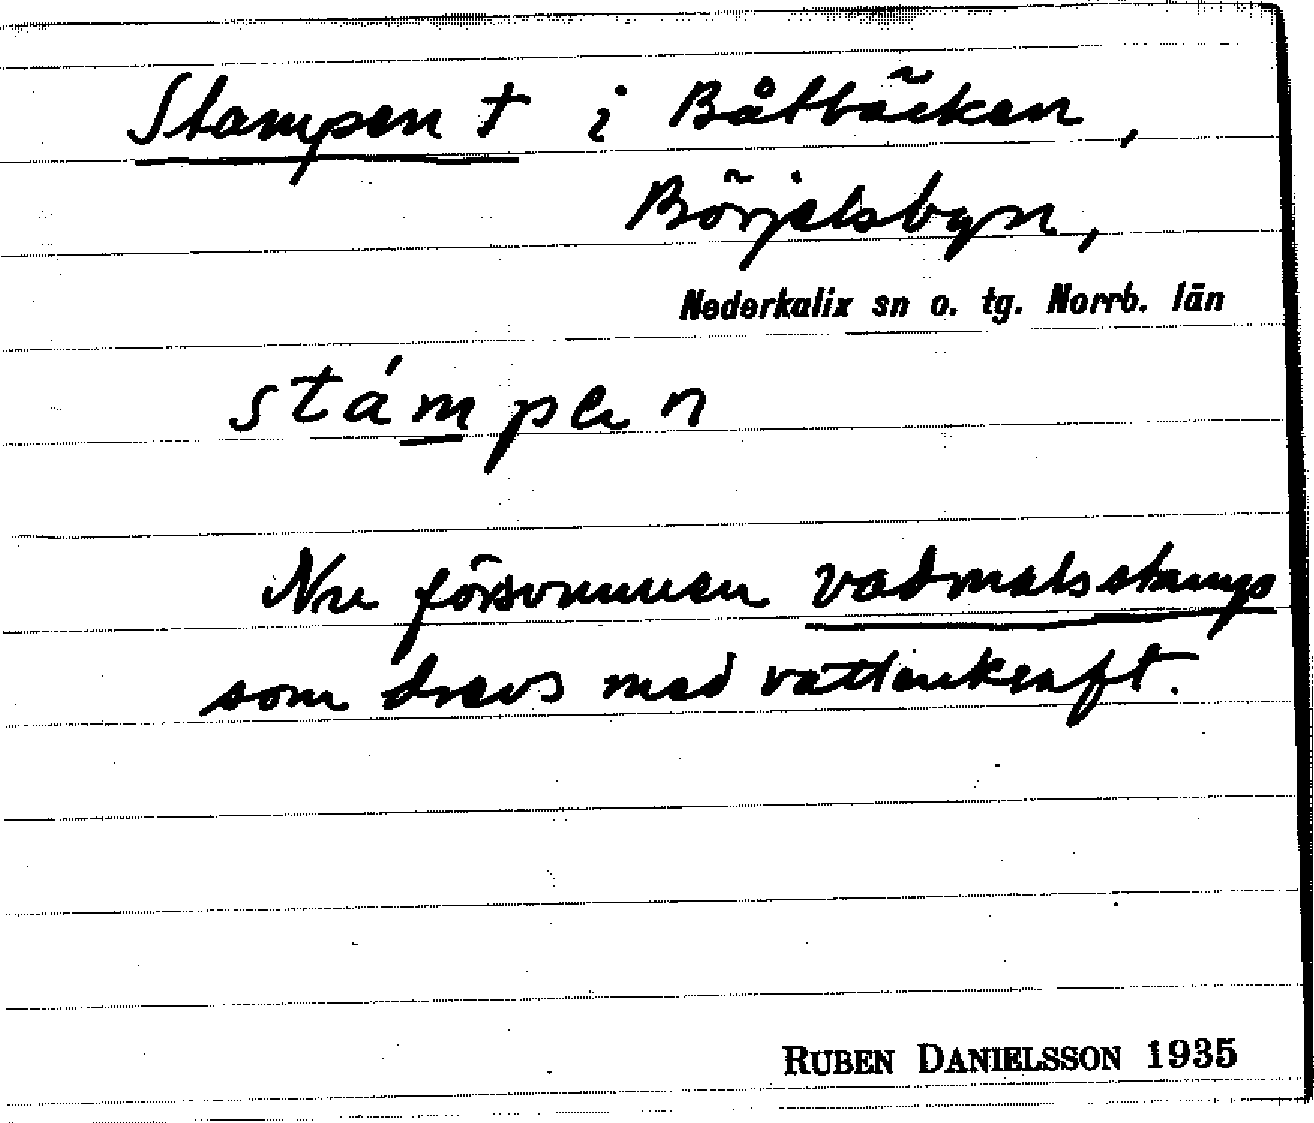 Stampen † i Båtbäcken,
Börjelsbyn,
Nederkalix sn o. tg. Norrb. län
stámpen
Nu försvunnen vadmalsstamp
som drevs med vattenkraft.
RUBEN DANIELSSON 1935